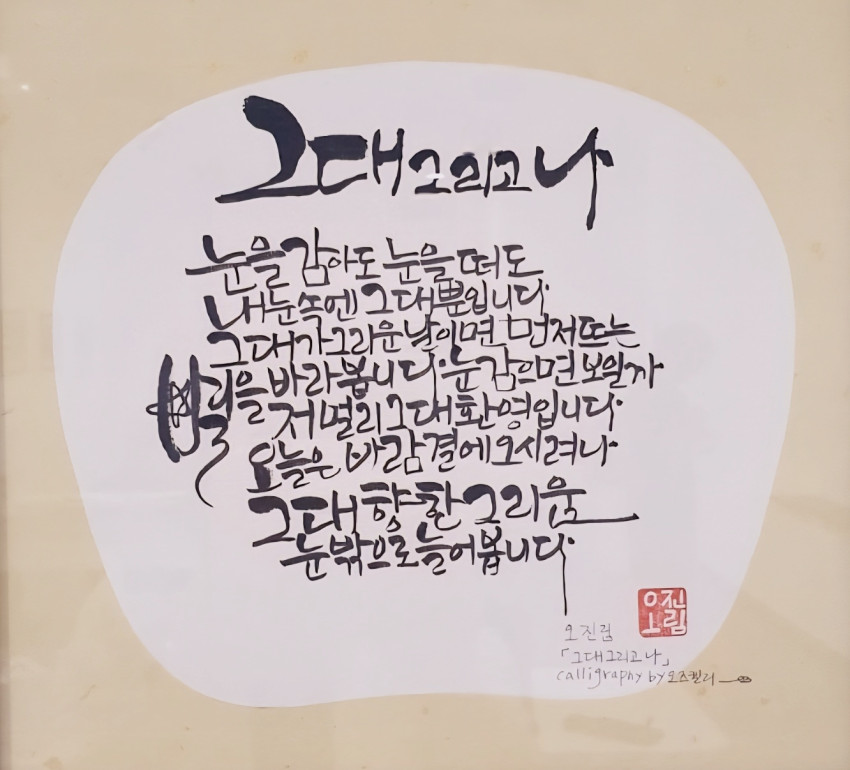 그대 그리고 나
눈을 감아도 눈을 떠도
내 눈속엔 그대뿐입니다.
그대가 그리운 날이면 먼저 뜨는
별을 바라봅니다. 눈 감으면 보일까
저 멀리 그대 환영입니다.
오늘은 바람결에 오시려나
그대 향한 그리움
눈 밖으로 늘어봅니다.
오진림
오진림
「그대그리고나」
calligraphy by 오즈캘리